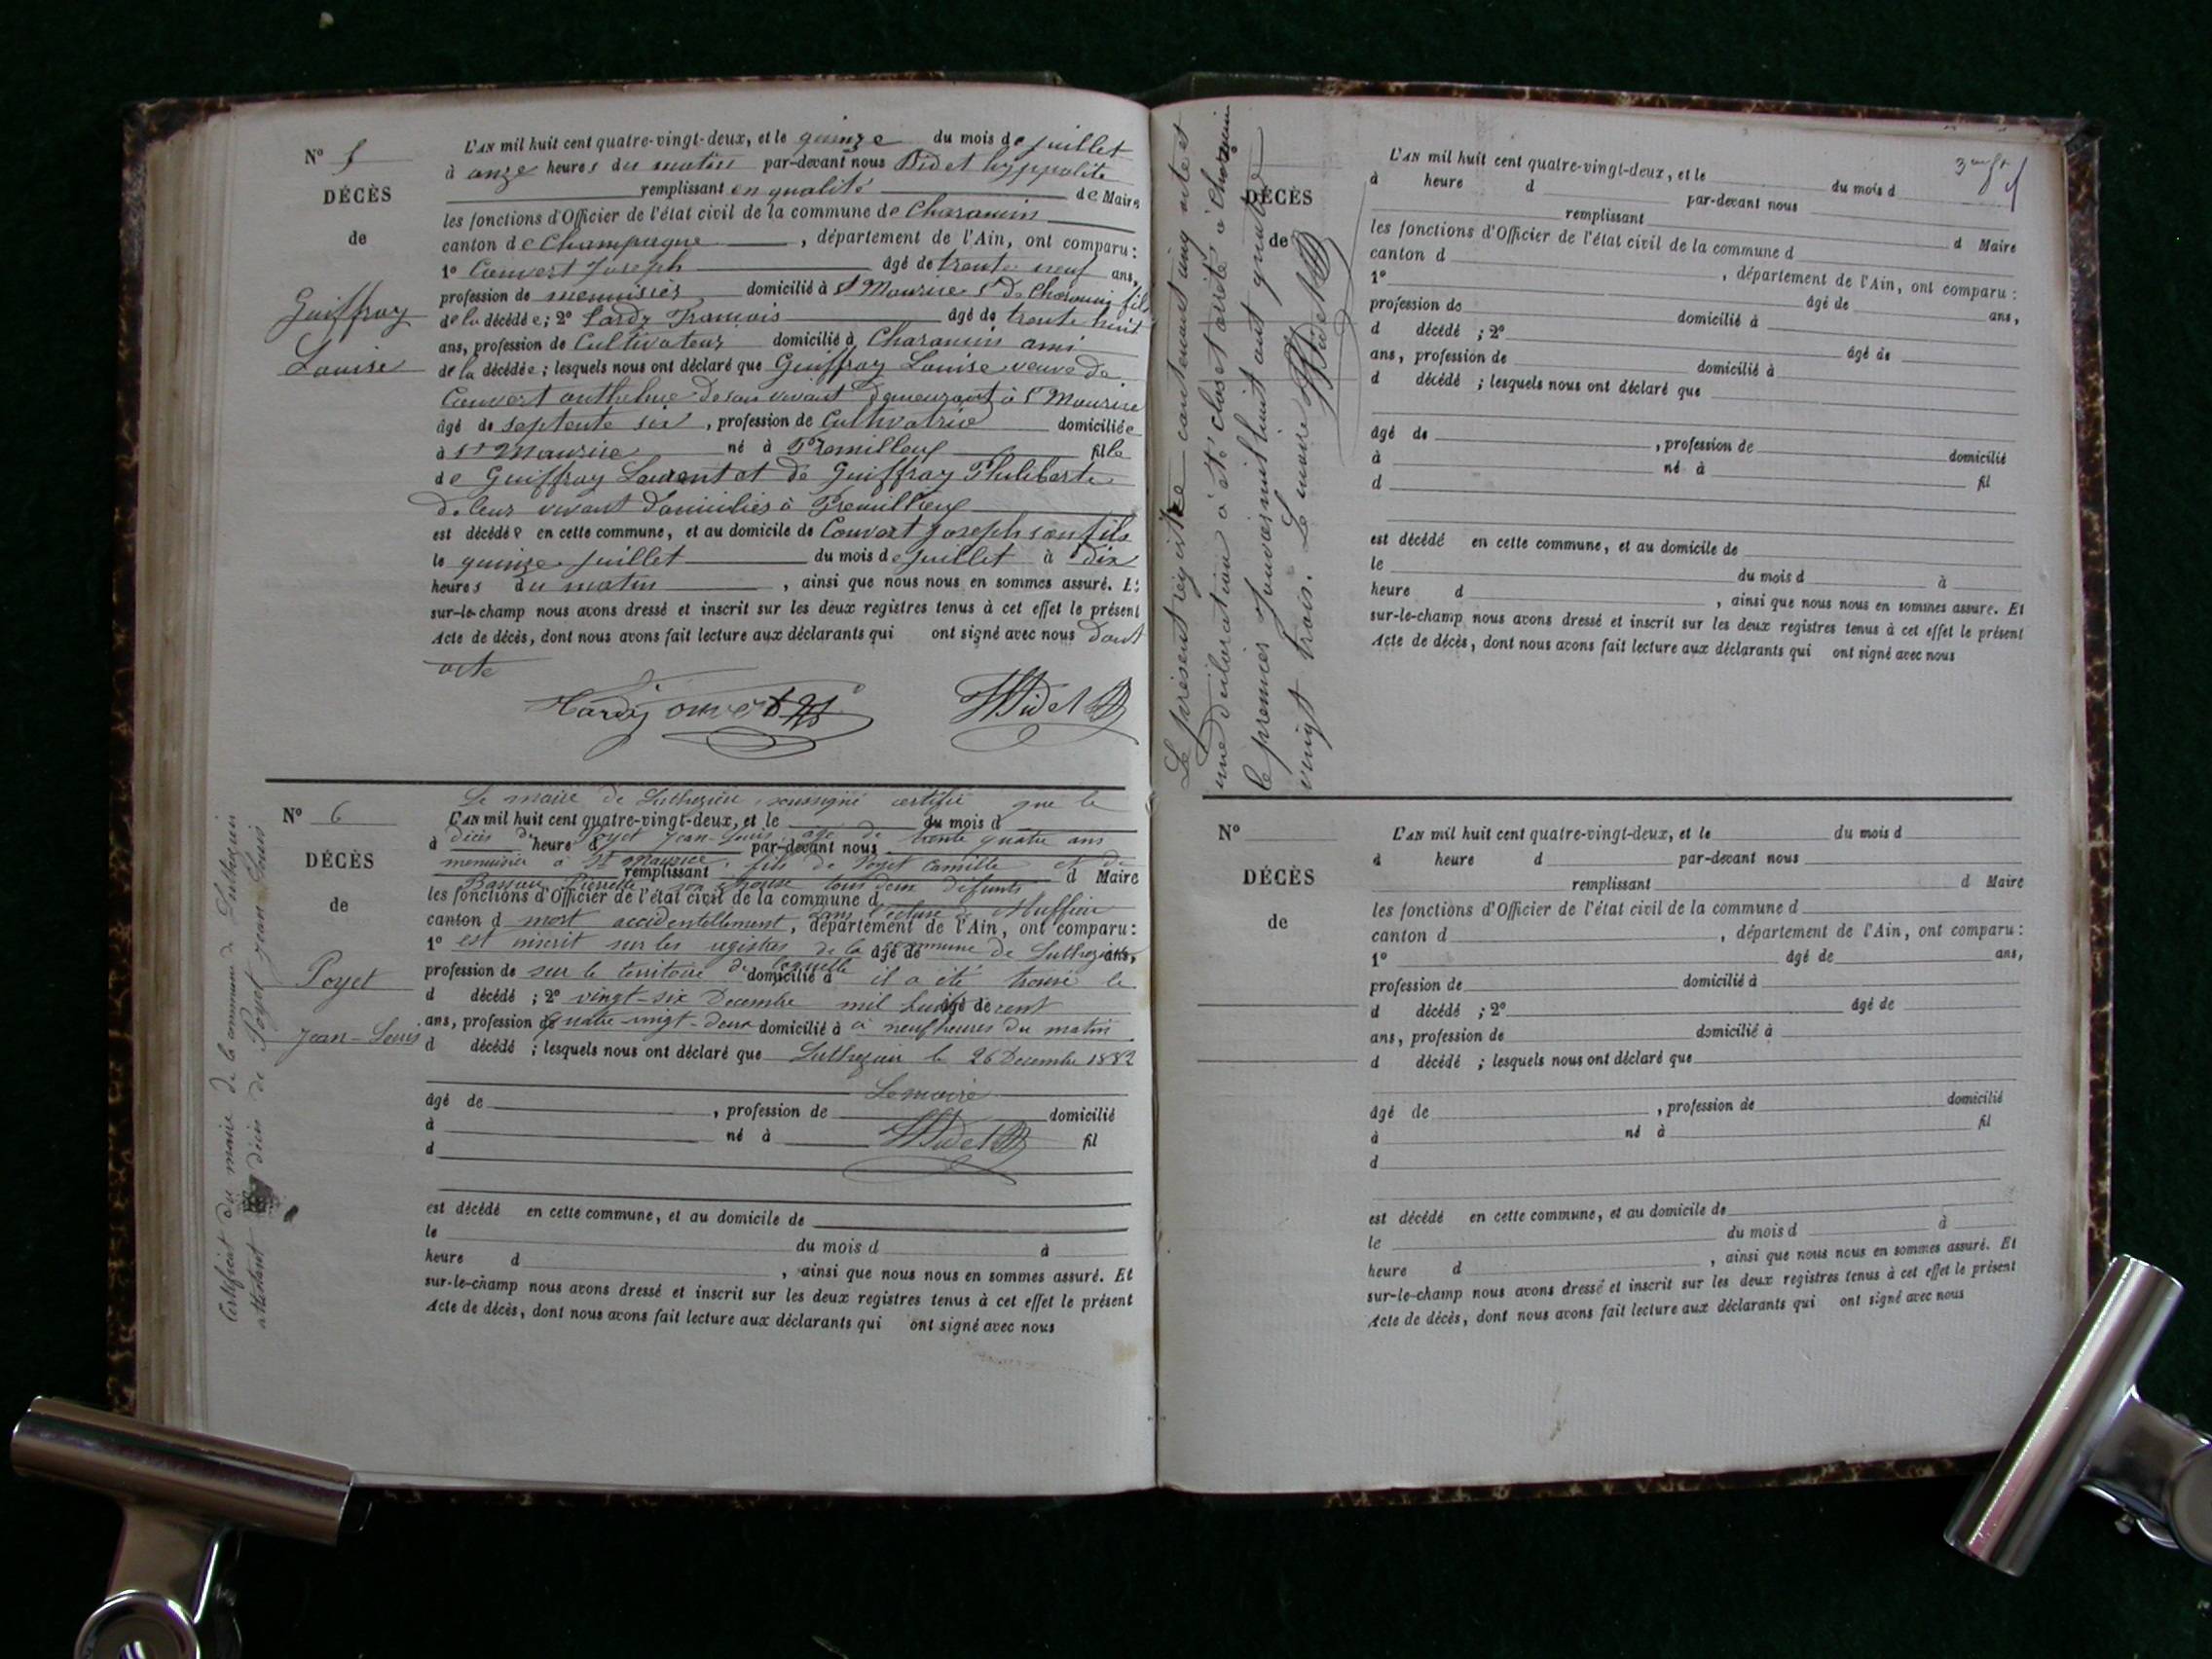 N° 5
DÉCÈS
de
Guiffray
Louise
L'AN mil huit cent quatre-vingt-deux, et le quinze du mois de juillet
à onze heures du matin par-devant nous Bidet hyppolite
remplissant en qualité de Maire
les fonctions d'Officier de l'état civil de la commune de Charancin
canton de Champagne, département de l'Ain, ont comparu :
1° Convert Joseph âgé de trente neuf ans,
profession de menuisier domicilié à St Maurice de Charancin fils
de la décédée ; 2° Lardy François âgé de trente huit
ans, profession de Cultivateur domicilié à Charancin ami
de la décédée ; lesquels nous ont déclaré que Guiffray Louise veuve de
Convert anthelme de son vivant demeurant à St Maurice
âgé de septente six, profession de Cultivatrice domiciliée
à St Maurice né à Premillieu fille
de Guiffray Laurent et de Guiffray Philiberte
de leur vivant domiciliés à Premillieu
est décédée en cette commune, et au domicile de Convert Joseph son fils
le quinze juillet du mois de juillet à dix
heures du matin, ainsi que nous nous en sommes assuré. Et
sur-le-champ nous avons dressé et inscrit sur les deux registres tenus à cet effet le présent
Acte de décès, dont nous avons fait lecture aux déclarants qui ont signé avec nous dont
acte
N° 6
DÉCÈS
de
Poyet
Jean-Louis
Certificat du maire de la commune de Luthézieu
attestant décès de Poyet Jean Louis
Le maire de Luthezieu, soussigné certifie que le
L'AN mil huit cent quatre-vingt-deux, et le du mois d
décès de Poyet Jean-Louis age de trente quatre ans
à heure d par-devant nous
menuisier à St Maurice, fils de Poyet Camille et de
remplissant d Maire
Pierrette son épouse tous deux défunts
les fonctions d'Officier de l'état civil de la commune d
canton d mort accidentellement, dans l'écluse de Ruffieu, département de l'Ain, ont comparu :
1° est inscrit sur les registres de la commune de Luthezieu âgé de ans,
profession de sur le territoire de laquelle domicilié à il a été trouvé le
d décédé ; 2° vingt-six Decembre mil huit cent âgé de
ans, profession de quatre-vingt-deux domicilié à à neuf heures du matin
d décédé ; lesquels nous ont déclaré que Luthezieu le 26 Decembre 1882
Le maire
HBidet
âgé de, profession de domicilié
à né à fil
d
est décédé en cette commune, et au domicile de
le du mois d à
heure d, ainsi que nous nous en sommes assuré. Et
sur-le-champ nous avons dressé et inscrit sur les deux registres tenus à cet effet le présent
Acte de décès, dont nous avons fait lecture aux déclarants qui ont signé avec nous
Le présent registre contenant cinq actes et
une déclaration a été clos et arrêté à Charancin
le premier Janvier mil huit cent quatre
vingt trois. Le maire HBidet
DÉCÈS
de
L'AN mil huit cent quatre-vingt-deux, et le du mois d
à heure d par-devant nous
remplissant d Maire
les fonctions d'Officier de l'état civil de la commune d
canton d, département de l'Ain, ont comparu :
1° âgé de ans,
profession de domicilié à
d décédé ; 2° âgé de
ans, profession de domicilié à
d décédé ; lesquels nous ont déclaré que
âgé de, profession de domicilié
à né à fil
d
est décédé en cette commune, et au domicile de
le du mois d à
heure d, ainsi que nous nous en sommes assuré. Et
sur-le-champ nous avons dressé et inscrit sur les deux registres tenus à cet effet le présent
Acte de décès, dont nous avons fait lecture aux déclarants qui ont signé avec nous
N°
DÉCÈS
de
L'AN mil huit cent quatre-vingt-deux, et le du mois d
à heure d par-devant nous
remplissant d Maire
les fonctions d'Officier de l'état civil de la commune d
canton d, département de l'Ain, ont comparu :
1° âgé de ans,
profession de domicilié à
d décédé ; 2° âgé de
ans, profession de domicilié à
d décédé ; lesquels nous ont déclaré que
âgé de, profession de domicilié
à né à fil
d
est décédé en cette commune, et au domicile de
le du mois d à
heure d, ainsi que nous nous en sommes assuré. Et
sur-le-champ nous avons dressé et inscrit sur les deux registres tenus à cet effet le présent
Acte de décès, dont nous avons fait lecture aux déclarants qui ont signé avec nous